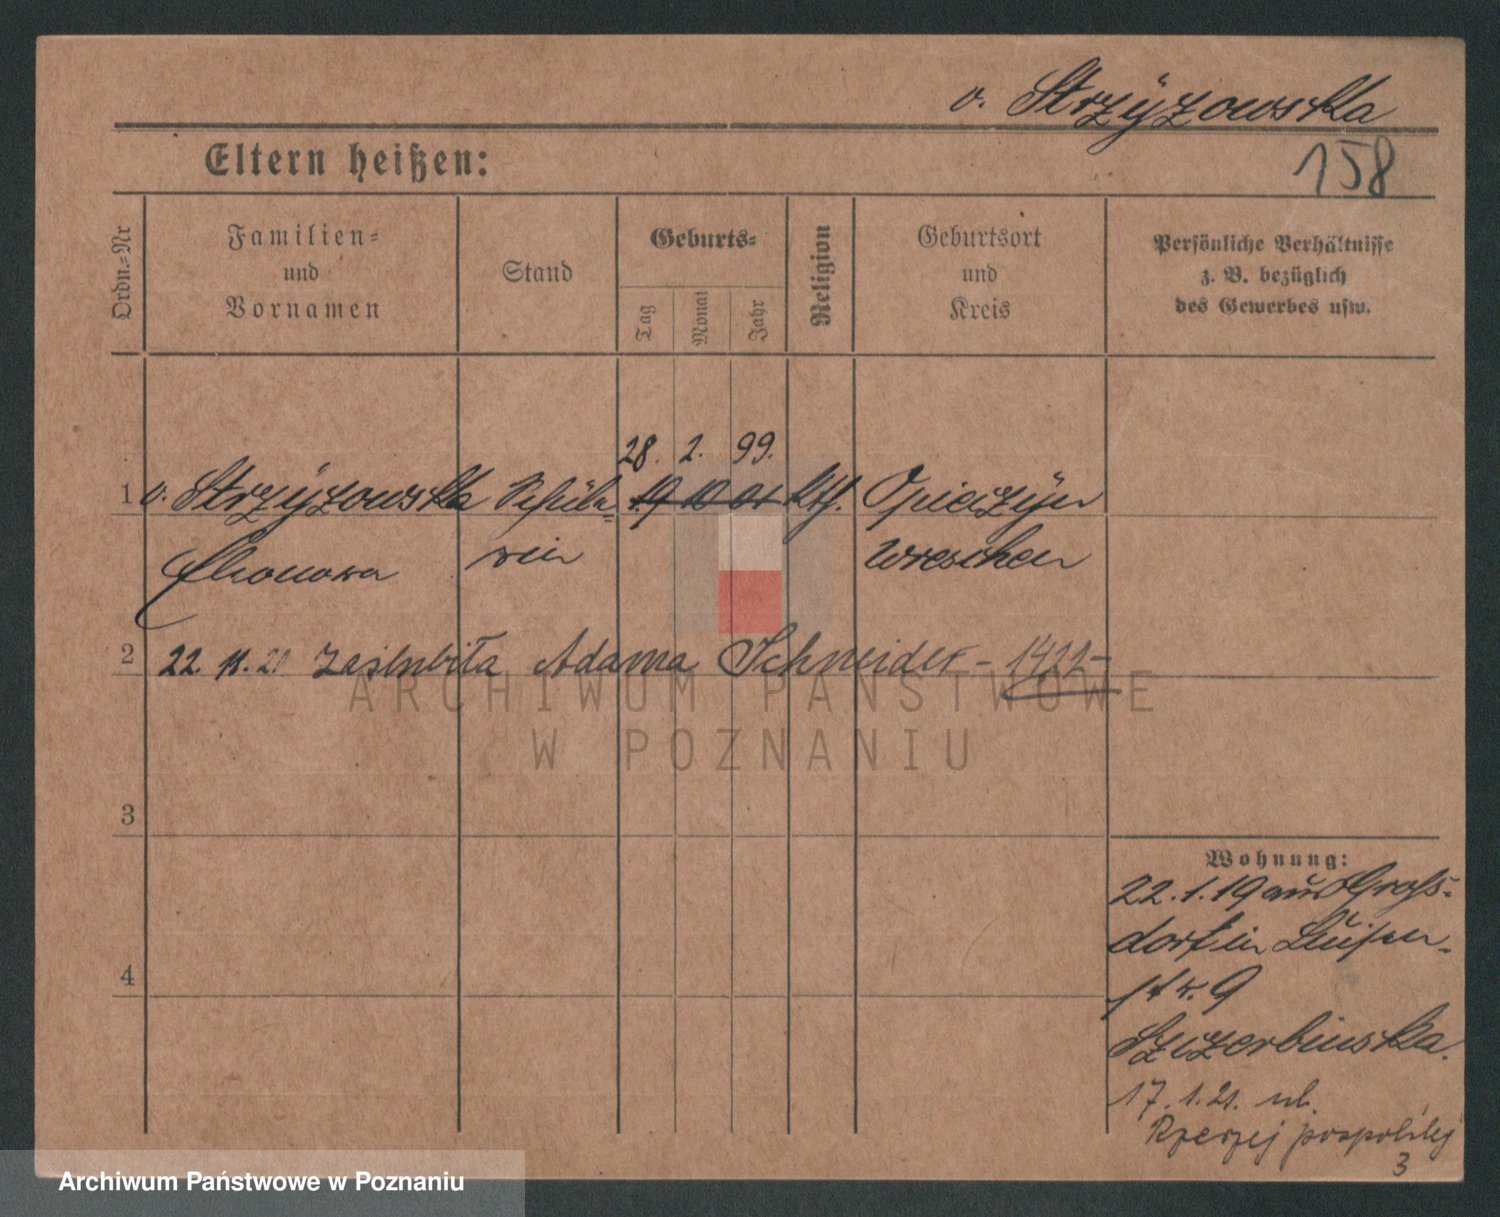 v. Strzÿzowska
158
Eltern heißen:
Ordn.-Nr
Familien-
und
Vornamen
Stand
Geburts-
Tag
Monat
Jahr
Religion
Geburtsort
und
Kreis
Persönliche Verhältnisse
z. B. bezüglich
des Gewerbes usw.
28. 2. 99.
1 v. Strzÿzowska Schüle= 19 10 01 kth. Opieczÿn
Eleonora rin Wreschen
2 22. 11. 21 zaślubiła Adama Schneider - 1422 -
3
Wohnung:
22.1.19 aus Groß-
dorf in Luisen-
str. 9
Szczerbinska.
4
17.1.21. ul.
Rzeczej pospolitej
3
ARCHIWUM PAŃSTWOWE
W POZNANIU
Archiwum Państwowe w Poznaniu